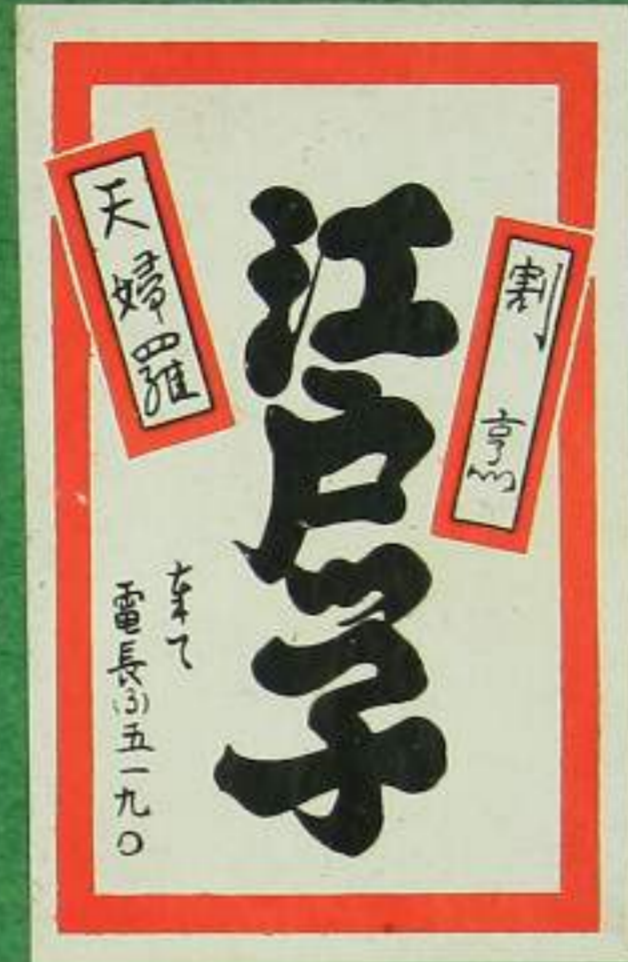 割烹
江戸ッ子
天婦羅
電長(3)五一九〇